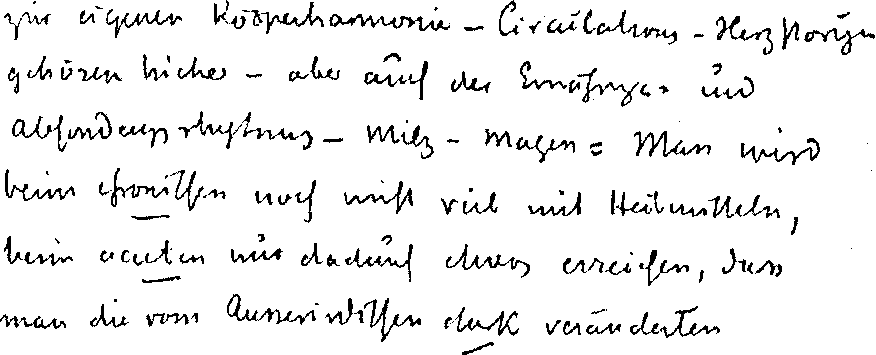 zur eigenen Körperharmonie – Circulations – Herzstörgen
gehören hieher – aber auch der Ernährgs= und
Absonderungsrhythmus – Milz – Magen = Man wird
beim chronischen noch nicht viel mit Heilmitteln,
beim acuten nur dadurch etwas erreichen, dass
man die vom Ausserirdischen stark veränderten